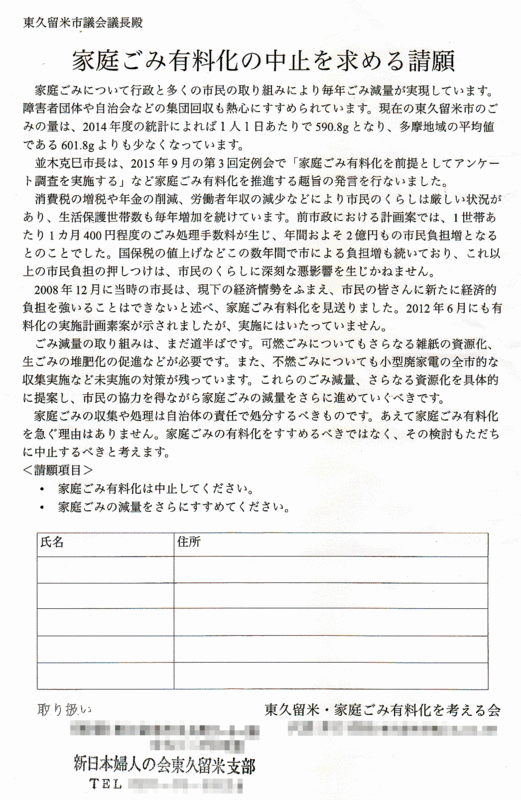 東久留米市議会議長殿
家庭ごみ有料化の中止を求める請願
家庭ごみについて行政と多くの市民の取り組みにより毎年ごみ減量が実現しています。
障害者団体や自治会などの集団回収も熱心にすすめられています。現在の東久留米市のご
みの量は、2014年度の統計によれば1人1日あたりで590.8gとなり、多摩地域の平均値
である601.8gよりも少なくなっています。
並木克巳市長は、2015年9月の第3回定例会で「家庭ごみ有料化を前提としてアンケー
ト調査を実施する」など家庭ごみ有料化を推進する趣旨の発言を行ないました。
消費税の増税や年金の削減、労働者年収の減少などにより市民のくらしは厳しい状況が
あり、生活保護世帯数も毎年増加を続けています。前市政における計画案では、1世帯あ
たり1カ月400円程度のごみ処理手数料が生じ、年間およそ2億円もの市民負担増となる
とのことでした。国保税の値上げなどこの数年間で市による負担増も続いており、これ以
上の市民負担の押しつけは、市民のくらしに深刻な悪影響を生じかねません。
2008年12月に当時の市長は、現下の経済情勢をふまえ、市民の皆さんに新たに経済的
負担を強いることはできないと述べ、家庭ごみ有料化を見送りました。2012年6月にも有
料化の実施計画素案が示されましたが、実施にはいたっていません。
ごみ減量の取り組みは、まだ道半ばです。可燃ごみについてもさらなる雑紙の資源化、
生ごみの堆肥化の促進などが必要です。また、不燃ごみについても小型廃家電の全市的な
収集実施など未実施の対策が残っています。これらのごみ減量、さらなる資源化を具体的
に提案し、市民の協力を得ながら家庭ごみの減量をさらに進めていくべきです。
家庭ごみの収集や処理は自治体の責任で処分するべきものです。あえて家庭ごみ有料化
を急ぐ理由はありません。家庭ごみの有料化をすすめるべきではなく、その検討もただち
に中止するべきと考えます。
＜請願項目＞
・ 家庭ごみ有料化は中止してください。
・ 家庭ごみの減量をさらにすすめてください。
氏名 住所
取り扱い 東久留米・家庭ごみ有料化を考える会
新日本婦人の会東久留米支部
TEL